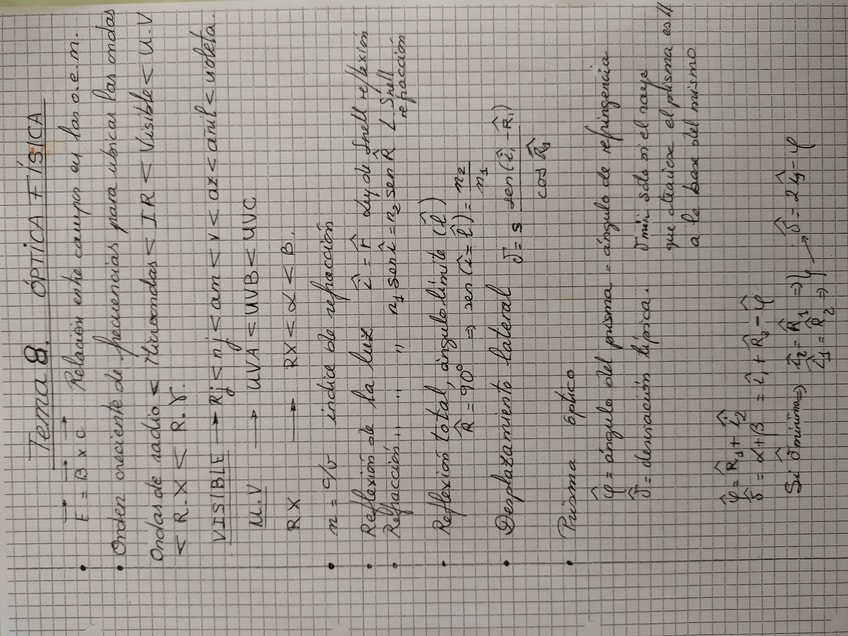 Tema 8. ÓPTICA FÍSICA
• E = B x c Relación entre campos en las o.e.m.
• Orden creciente de frecuencias para ubicar las ondas
Ondas de radio < Microondas < IR < Visible < U.V
< R.X < R.γ.
VISIBLE → Rj < nj < am < v < az < añil < violeta.
U.V → UVA < UVB < UVC
RX → RX < α < B.
• n = c/v indice de refracción
• Reflexión de la luz î = r̂ Ley de Snell reflexión
• Refracción " " " n1 sen î = n2 sen R̂ < Snell refracción
• Reflexión total, ángulo límite (l̂)
R̂ = 90° ⇒ sen (î = l̂) = n2/n1
• Desplazamiento lateral δ = s sen(î1 - R̂1)/cos R̂1
• Prisma óptico
φ̂ = ángulo del prisma = ángulo de refringencia
δ̂ = desviación típica. δmín solo si el rayo
que atraviesa el prisma es //
a la base del mismo
φ̂ = R̂1 + î2
δ̂ = α + β = î1 + R̂2 - φ̂
Si δ̂ mínima ⇒ î2 = R̂1 ⇒
î1 = R̂2 ⇒ → δ̂ = 2î1 - φ̂